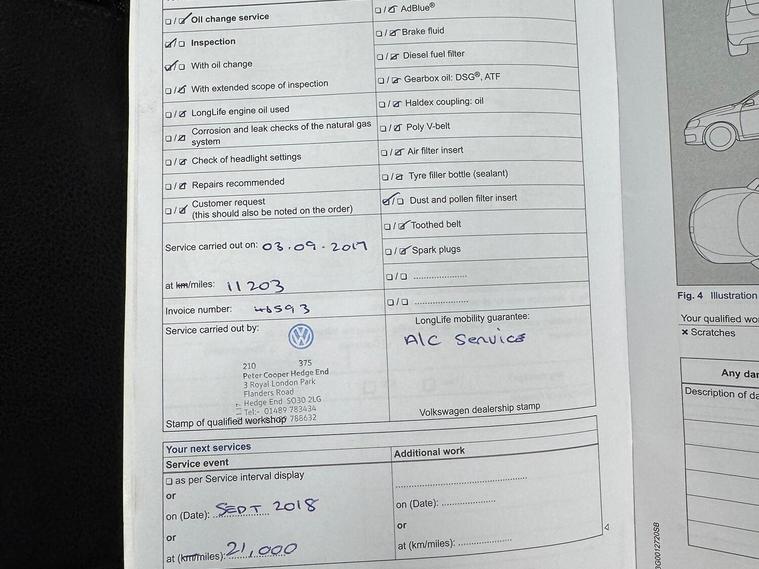 ☐/☑ Oil change service
☑/☐ Inspection
☑/☐ With oil change
☐/☑ With extended scope of inspection
☐/☑ LongLife engine oil used
☐/☑ Corrosion and leak checks of the natural gas
system
☐/☑ Check of headlight settings
☐/☑ Repairs recommended
☐/☑ Customer request
(this should also be noted on the order)
Service carried out on: 03.09.2017
at km/miles: 11203
Invoice number: 48593
Service carried out by:
210 375
Peter Cooper Hedge End
3 Royal London Park
Flanders Road
Hedge End SO30 2LG
Tel:- 01489 783434
788632
Stamp of qualified workshop
☐/☑ AdBlue®
☐/☑ Brake fluid
☐/☑ Diesel fuel filter
☐/☑ Gearbox oil: DSG®, ATF
☐/☑ Haldex coupling: oil
☐/☑ Poly V-belt
☐/☑ Air filter insert
☐/☑ Tyre filler bottle (sealant)
☑/☐ Dust and pollen filter insert
☐/☑ Toothed belt
☐/☑ Spark plugs
☐/☐ ....................
☐/☐ ....................
LongLife mobility guarantee:
A/C Service
Volkswagen dealership stamp
Your next services
Service event
☐ as per Service interval display
or
on (Date): SEPT 2018
or
at (km/miles): 21,000
Additional work
........................................
on (Date): ................
or
at (km/miles): ................
Fig. 4 Illustration
Your qualified wo
✗ Scratches
Any da
Description of da
0G0012720SB